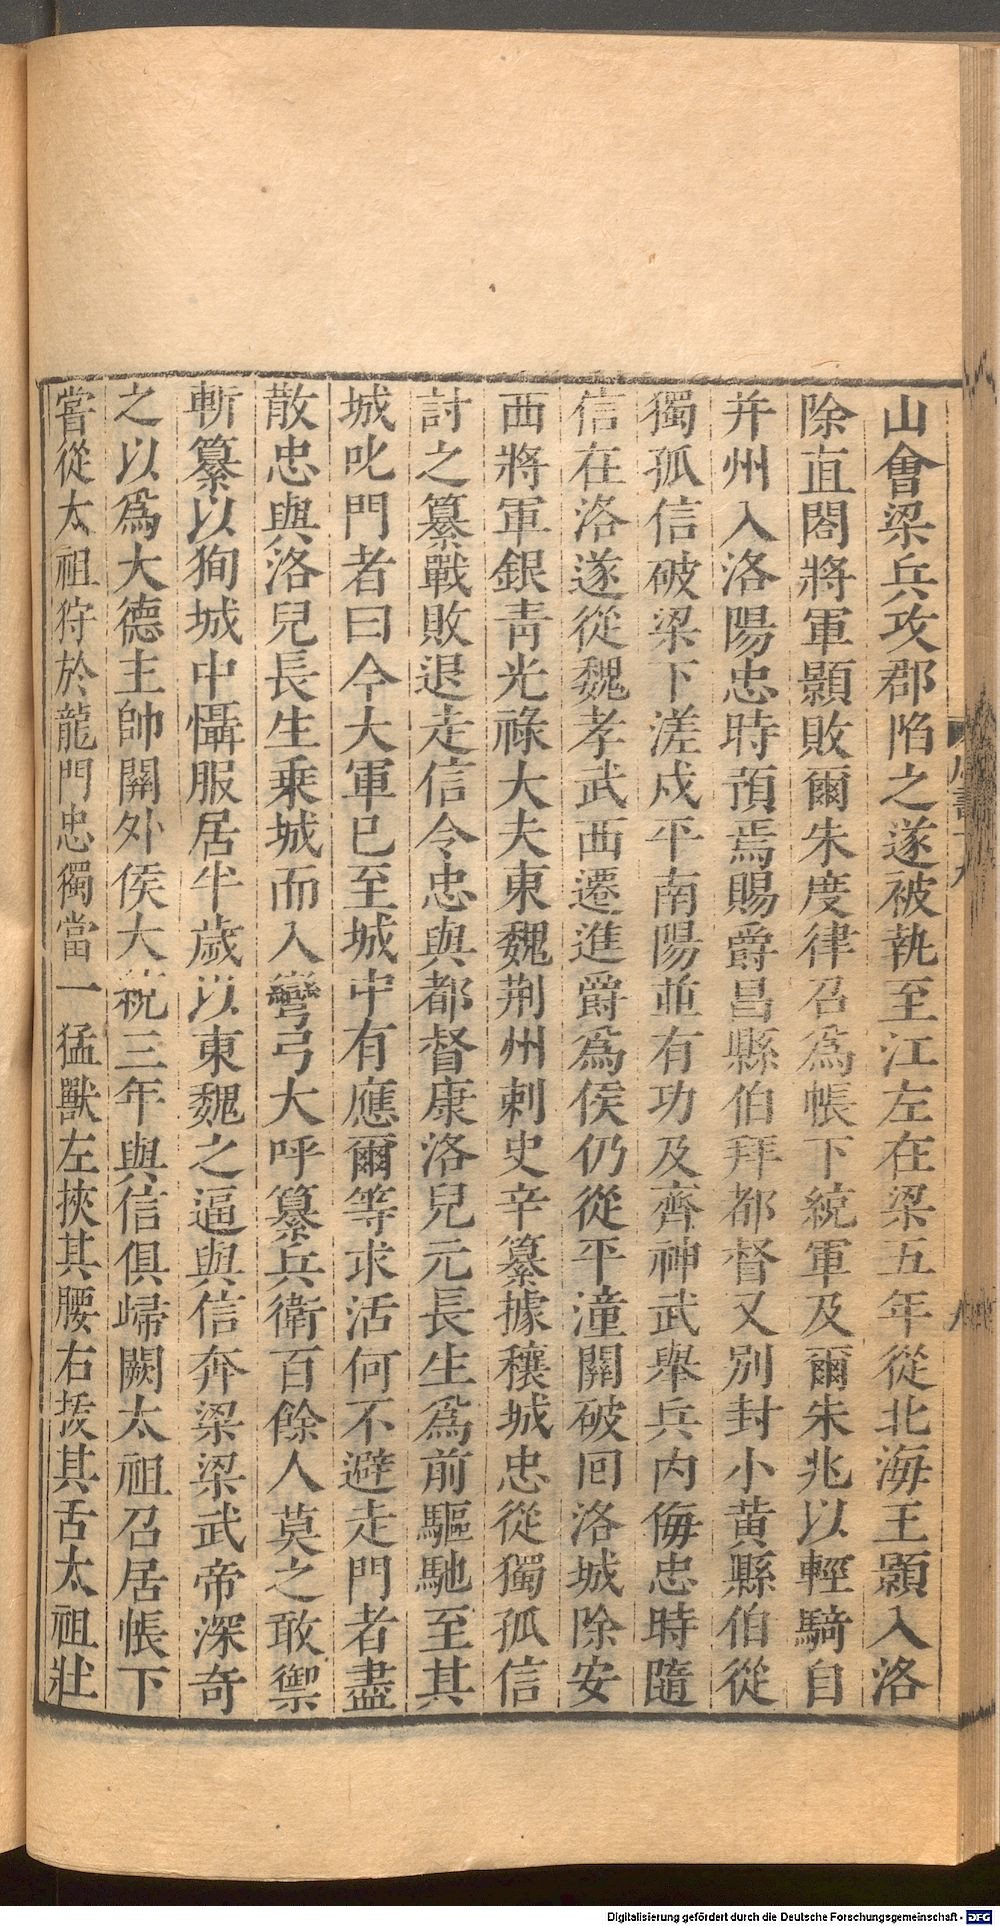 山會梁兵攻郡陷之遂被執至江左在梁五年從北海王顥入洛
除直閤將軍顥敗爾朱度律召爲帳下統軍及爾朱兆以輕騎自
并州入洛陽忠時預焉賜爵昌縣伯拜都督又別封小黄縣伯從
獨孤信破梁下溠戍平南陽並有功及齊神武舉兵内侮忠時隨
信在洛遂從魏孝武西遷進爵爲侯仍從平潼關破回洛城除安
西將軍銀青光祿大夫東魏荆州刺史辛纂據穰城忠從獨孤信
討之纂戰敗退走信令忠與都督康洛兒元長生爲前驅馳至其
城叱門者曰今大軍已至城中有應爾等求活何不避走門者盡
散忠與洛兒長生乗城而入彎弓大呼纂兵衛百餘人莫之敢禦
斬纂以狥城中懾服居半歲以東魏之逼與信奔梁梁武帝深奇
之以爲大德主帥關外侯大統三年與信俱歸闕太祖召居帳下
嘗從太祖狩於龍門忠獨當一猛獸左挾其腰右拔其舌太祖壯
周書十九
八
Digitalisierung gefördert durch die Deutsche Forschungsgemeinschaft - DFG